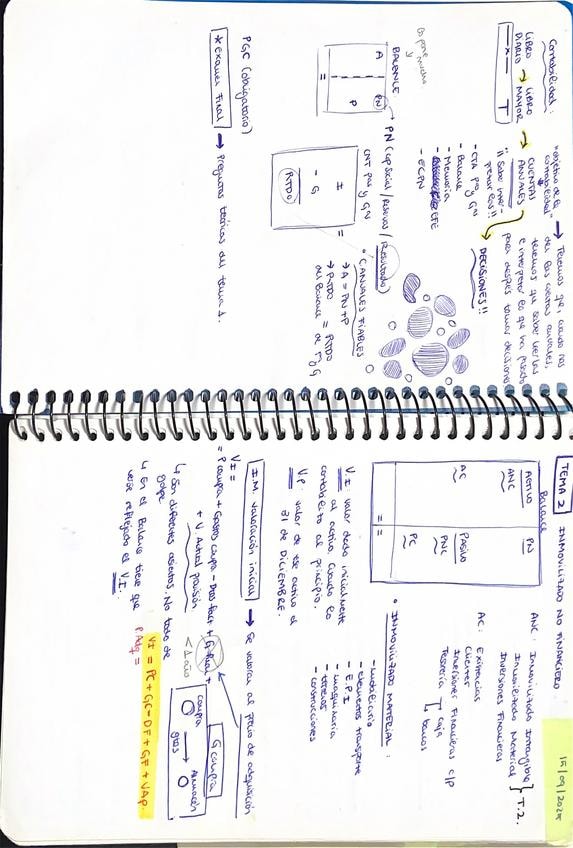 Contabilidad:
LIBRO DIARIO → LIBRO MAYOR → CUENTAS ANUALES
"objetivo de la contabilidad"
"Saber inter-
pretarlas!!
→ Tenemos que, cuando nos
den las cuentas anuales,
tenemos que saber leerlas
e interpretar lo que ha pasado
para después tomar decisiones
→ DECISIONES!!
- CTA P y G
- Balance
- Memoria
- EFE
- ECPN
BALANCE
A
PN
P
→ PN (cap social / reservas / Resultado)
CNT P y G
I
- G
RTDO
=
* C. ANUALES FIABLES
→ A = PN + P
→ RTDO = RTDO
del Balance de P y G
PGC (obligatorio)
* Examen Final → Preguntas teóricas del tema 1.
15/09/2025
TEMA 2
INMOVILIZADO NO FINANCIERO
Balance
ACTIVO
PN
ANC
AC
PASIVO
PNC
PC
ANC: Inmovilizado Intangible
Inmovilizado Material
} T.2.
Inversiones Financieras
AC: Existencias
Clientes
Inversiones Financieras c/p
Tesorería
caja
bancos
* INMOVILIZADO MATERIAL:
- mobiliario
- elementos transporte
- E.P.I
- maquinaria
- terrenos
- construcciones
V.I valor dado inicialmente
al activo. Cuando lo
contabilizo al principio.
V.P. valor de ese activo al
31 de DICIEMBRE.
I.M. valoración inicial → Se valoran al precio de adquisición
V I =
= P compra + Gastos compra - Dtos fact +
+ V. Actual
G compra
< 1 año
compra
→
Almacén
↳ Son diferentes asientos. No todo de
golpe
↳ En el Balance tiene que
verse reflejado el V.I.
P Adq =
VI = PC + GC - DF + GF + VAP.